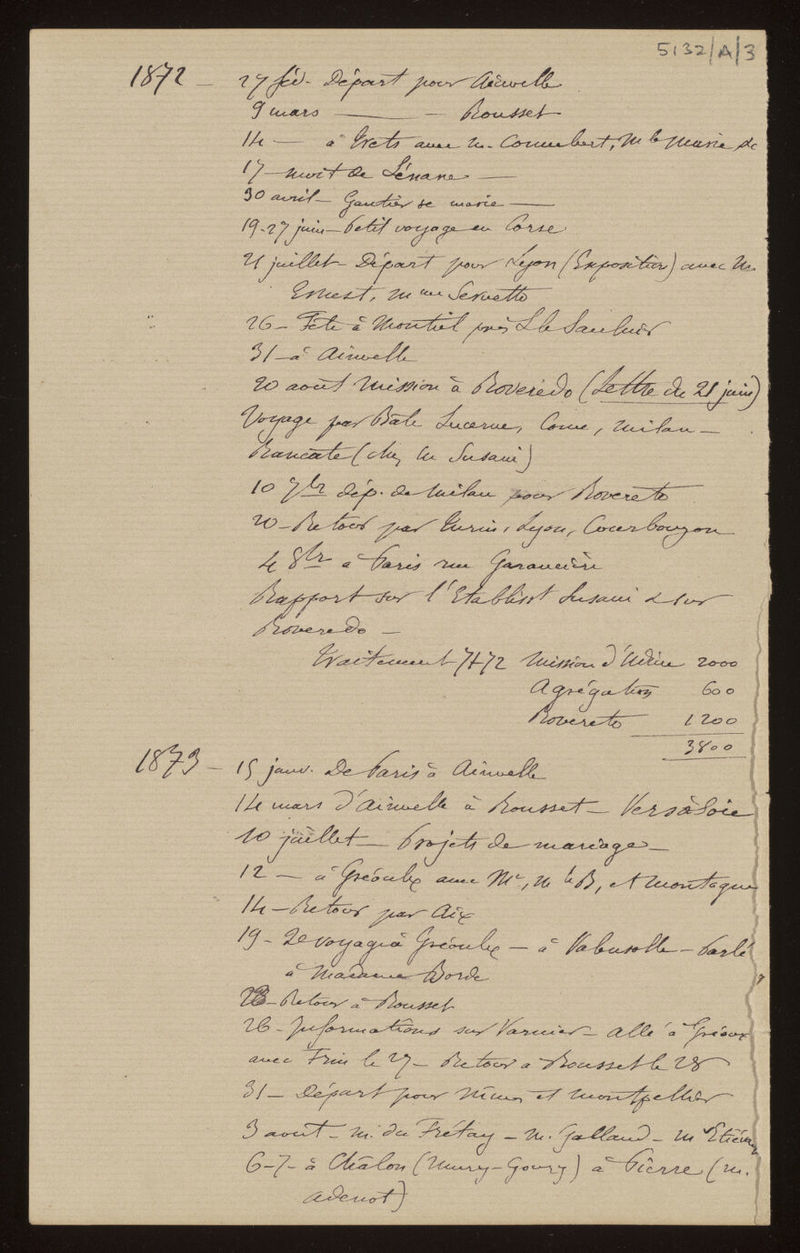 5132/A/3
1872 — 27 fév. Départ pour Ainvelle
9 mars — — Rousset
14 — à Trets avec M. Coumbert, M le Maire &c
17 — mort de
30 avril — Gautier se marie —
19-27 juin — Petit voyage en Corse
21 juillet Départ pour Lyon (Exposition) avec M.
Ernest, Mme Servetto
26 — Fête à Montiel près L le Saulnier
31 — à Ainvelle
20 août Mission à Roveredo (Lettre du 21 juin)
Voyage par Bâle Lucerne, Come, Milan —
Rancate (chez M Susani)
10 7bre dép. de Milan pour Rovereto
20 — Retour par Turin, Lyon, Courbouzon
4 8bre à Paris rue Garancière
Rapport sur l'Etablisst Susani & sur
Roveredo —
Traitement 71-72 Mission d'Udine 2000
Agrégation 600
Rovereto 1200
3800
1873 — 15 janv. De Paris à Ainvelle
14 mars d'Ainvelle à Rousset — Vers à Soie
10 juillet — Projets de mariage —
12 — à Gréoulx avec Mr, M le B, et Montagne
14 — Retour par Aix
19 — 2e voyage à Gréoulx — à — Parlé
à Madame Borde
23 — Retour à Rousset
26 — Informations sur Varnier — allé à Gréoux
avec le 27 — Retour à Rousset le 28
31 — Départ pour Nîmes et Montpellier
3 août — M. du Frétay — M. Galland — M Etienne
6-7 — à Châlon (Mury-Goury) à Pierre (M.
Adenot)